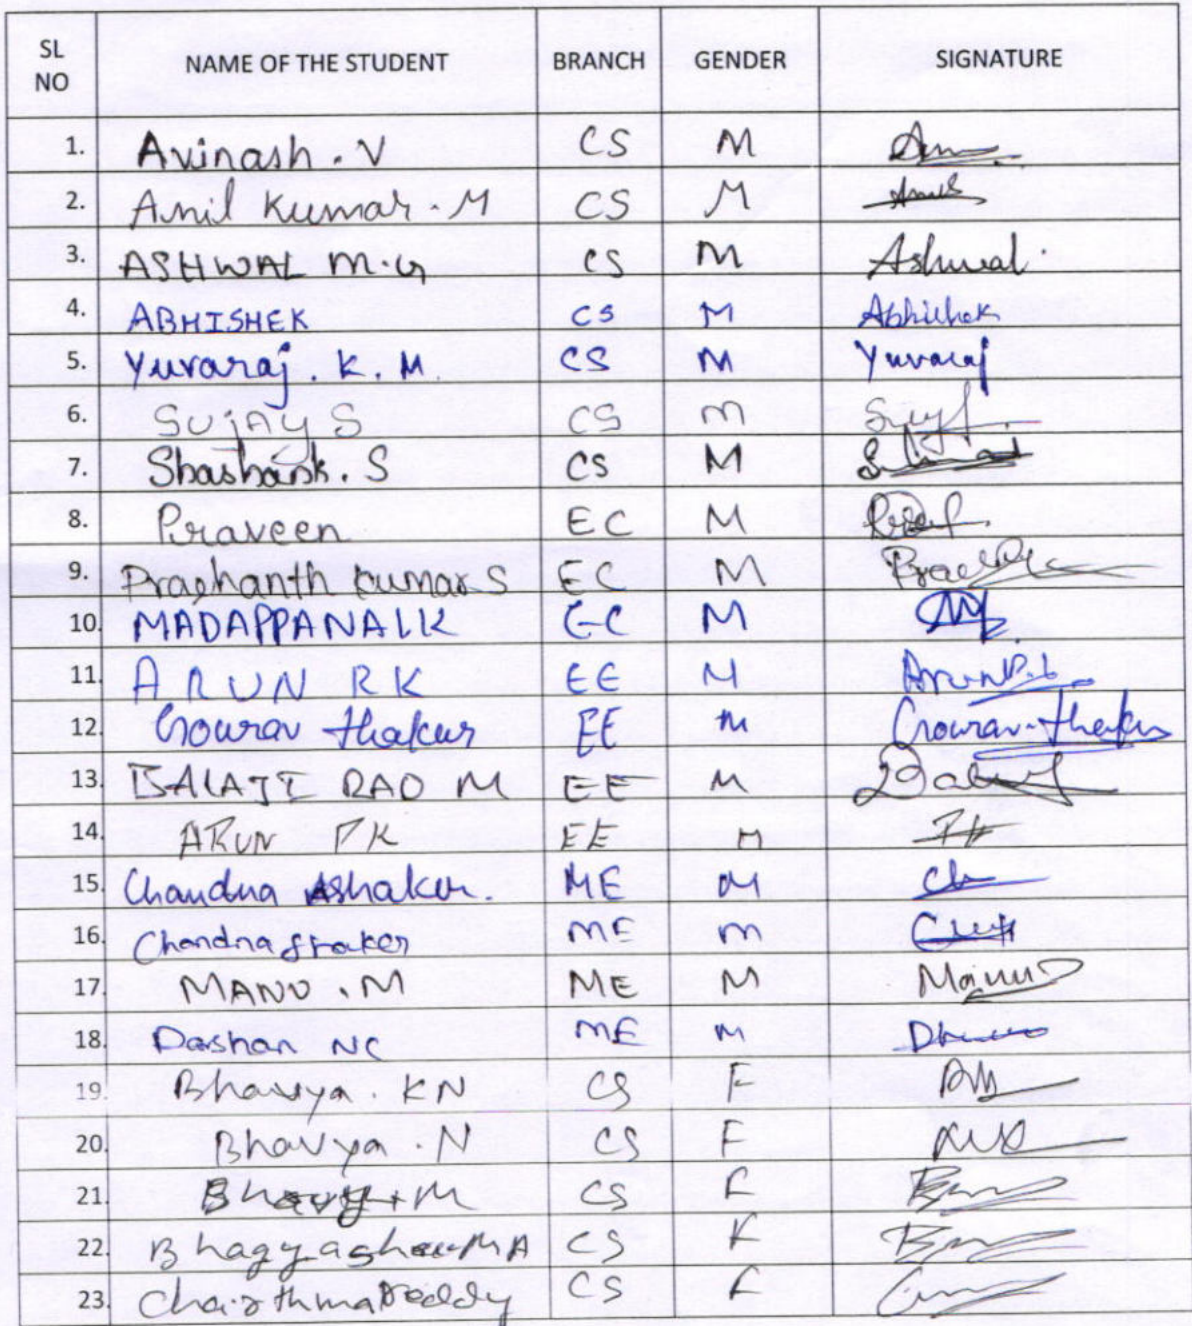 SL NO NAME OF THE STUDENT BRANCH GENDER SIGNATURE
1. Avinash . V CS M
2. Anil Kumar . M CS M
3. ASHWAL M.G CS M Ashwal
4. ABHISHEK CS M Abhishek
5. Yuvaraj . K . M. CS M Yuvaraj
6. SUJAY S CS M
7. Shashank . S CS M
8. Praveen EC M
9. Prashanth kumar S EC M
10. MADAPPANAIK EC M
11. ARUN RK EE M
12. Gourav thakur EE M Gourav thakur
13. BALAJI RAO M EE M
14. ARUN PK EE M
15. Chandra ME M
16. ME M
17. MANU . M ME M
18. Darshan NC ME M
19. Bhavya . KN CS F
20. Bhavya . N CS F
21. M CS F
22. CS F
23. Reddy CS F